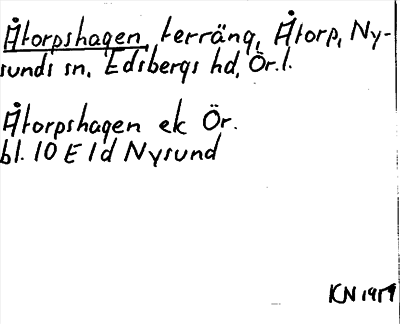 Åtorpshagen, terräng, Åtorp, Ny-
sunds sn, Edsbergs hd, Ör.l.
Åtorpshagen ek Ör.
bl. 10 E 1d Nysund
KN